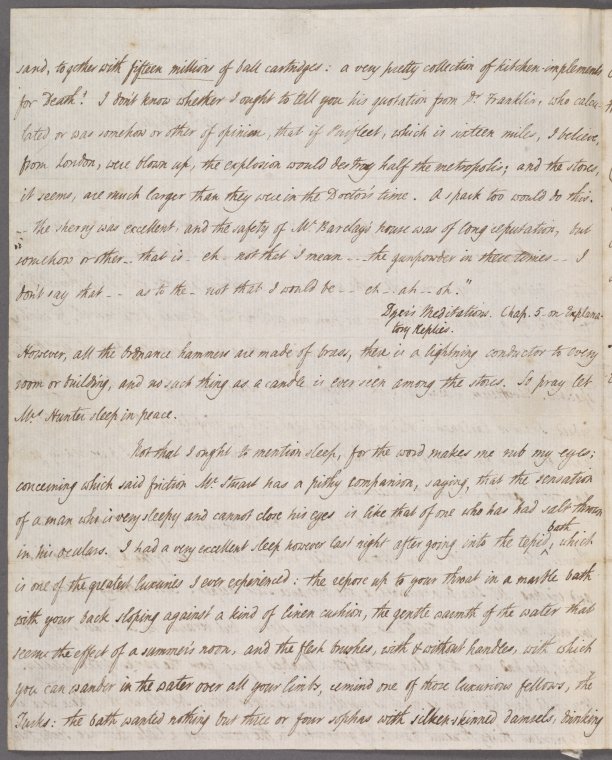 sand, together with fifteen millions of ball cartridges: a very pretty collection of kitchen-implements
for Death! I don't know whether I ought to tell you his quotation from Dr Franklin, who calcu-
lated or was somehow or other of opinion, that if Purfleet, which is sixteen miles, I believe,
from London, were blown up, the explosion would destroy half the metropolis; and the stores,
it seems, are much larger than they were in the Doctor's time. A spark too would do this.
-- the sherry was excellent, and the safety of Mr Barclay's house was of long reputation, but
"somehow or other -- that is - eh - not that I mean -- the gunpowder in these times -- I
don't say that -- as to the - not that I would be -- eh - ah - oh."
Dyer's Meditations. Chap. 5. on Explana-
tory Replies.
However, all the Ordnance hammers are made of brass, there is a lightning conductor to every
room or building, and no such thing as a candle is ever seen among the stores. So pray let
Mrs Hunter sleep in peace.
Not that I ought to mention sleep, for the word makes me rub my eyes;
concerning which said friction Mr Stuart has a pithy comparison, saying, that the sensation
of a man who is very sleepy and cannot close his eyes is like that of one who has had salt thrown
in his oculars. I had a very excellent sleep however last night after going into the tepid bath, which
is one of the greatest luxuries I ever experienced: the repose up to your throat in a marble bath
with your back sloping against a kind of linen cushion, the gentle warmth of the water that
seems the effect of a summer's noon, and the flesh brushes, with & without handles, with which
you can wander in the water over all your limbs, remind one of those luxurious fellows, the
Turks: the bath wanted nothing but three or four sophas with silken-skinned damsels, drinking